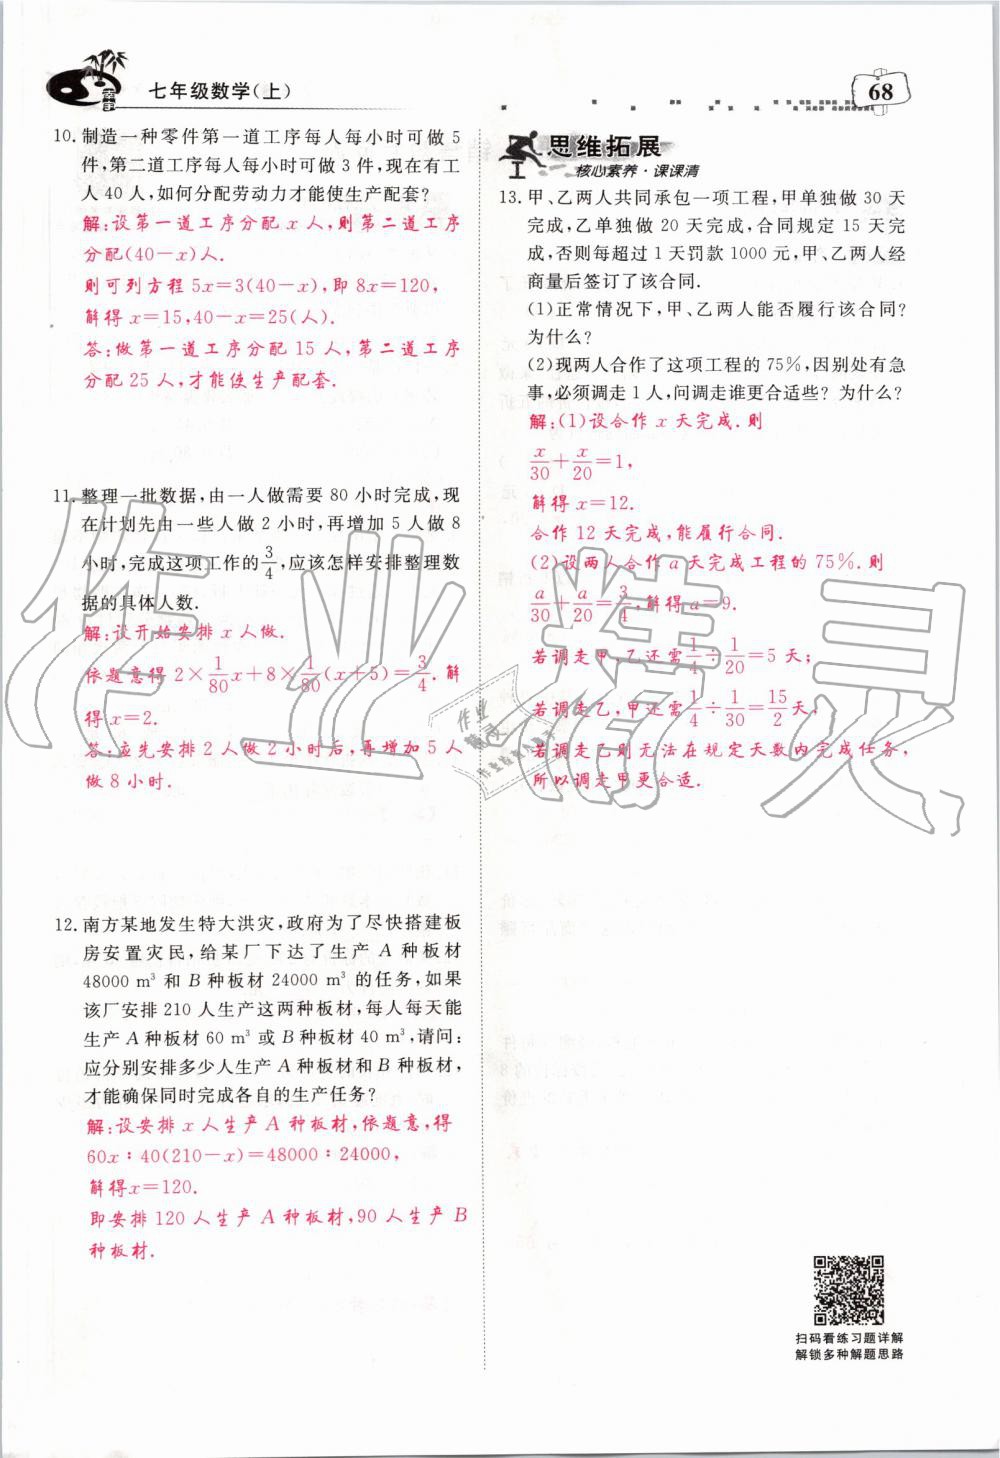 七年级数学(上)
68
10. 制造一种零件第一道工序每人每小时可做 5
件,第二道工序每人每小时可做 3 件,现在有工
人 40 人,如何分配劳动力才能使生产配套?
解:设第一道工序分配 x 人,则第二道工序
分配(40-x)人.
则可列方程 5x=3(40-x),即 8x=120,
解得 x=15,40-x=25(人).
答:做第一道工序分配 15 人,第二道工序
分配 25 人,才能使生产配套.
11. 整理一批数据,由一人做需要 80 小时完成,现
在计划先由一些人做 2 小时,再增加 5 人做 8
小时,完成这项工作的3/4,应该怎样安排整理数
据的具体人数.
解:设开始安排 x 人做.
依题意得 2×1/80x+8×1/80(x+5)=3/4.解
得 x=2.
答:应先安排 2 人做 2 小时后,再增加 5 人
做 8 小时.
12. 南方某地发生特大洪灾,政府为了尽快搭建板
房安置灾民,给某厂下达了生产 A 种板材
48000 m³ 和 B 种板材 24000 m³ 的任务,如果
该厂安排 210 人生产这两种板材,每人每天能
生产 A 种板材 60 m³ 或 B 种板材 40 m³,请问:
应分别安排多少人生产 A 种板材和 B 种板材,
才能确保同时完成各自的生产任务?
解:设安排 x 人生产 A 种板材,依题意,得
60x∶40(210-x)=48000∶24000,
解得x=120.
即安排 120 人生产 A 种板材,90 人生产 B
种板材.
思维拓展
核心素养·课课清
13. 甲、乙两人共同承包一项工程,甲单独做 30 天
完成,乙单独做 20 天完成,合同规定 15 天完
成,否则每超过 1 天罚款 1000 元,甲、乙两人经
商量后签订了该合同.
(1)正常情况下,甲、乙两人能否履行该合同?
为什么?
(2)现两人合作了这项工程的 75%,因别处有急
事,必须调走 1 人,问调走谁更合适些? 为什么?
解:(1)设合作 x 天完成.则
x/30+x/20=1,
解得 x=12.
合作 12 天完成,能履行合同.
(2)设两人合作 a 天完成工程的 75%.则
a/30+a/20=3/4,解得 a=9.
若调走甲,乙还需1/4÷1/20=5 天;
若调走乙,甲还需1/4÷1/30=15/2天,
若调走乙则无法在规定天数内完成任务,
所以调走甲更合适.
扫码看练习题详解
解锁多种解题思路
作业精灵